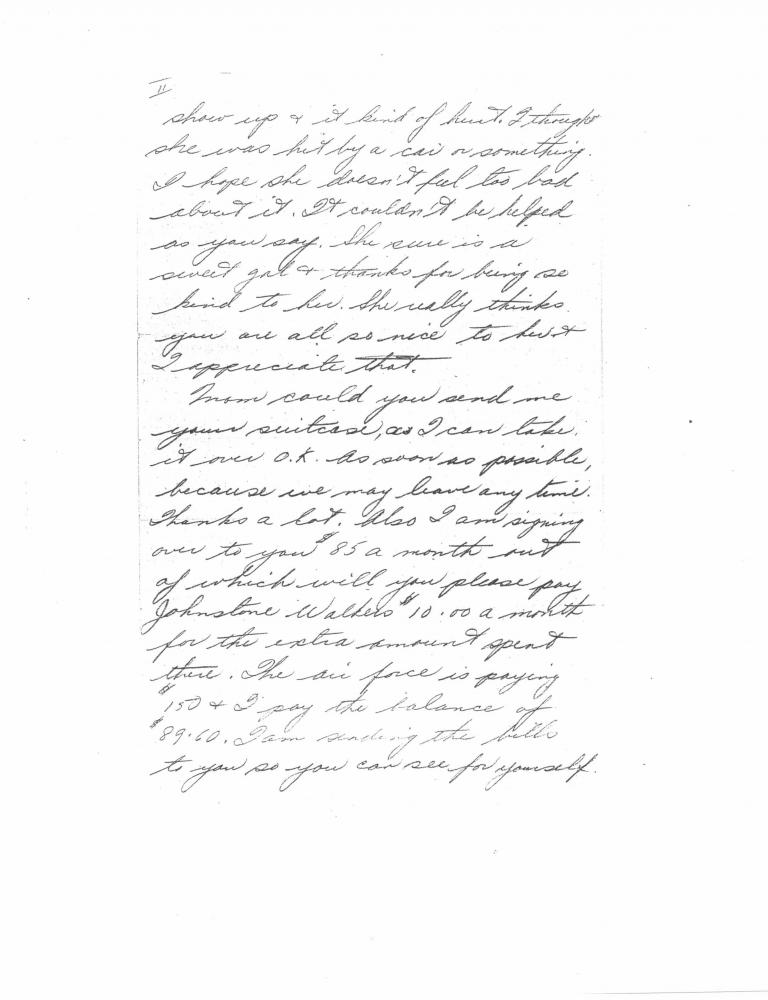 II
show up & it kind of hurt. I thought
she was hit by a car or something.
I hope she doesn't feel too bad
about it. It couldn't be helped
as you say. She sure is a
sweet gal & thanks for being so
kind to her. She really thinks
you are all so nice to her &
I appreciate that.
Mom could you send me
your suitcase, as I can take
it over O.K. As soon as possible,
because we may leave any time.
Thanks a lot. Also I am signing
over to you $85 a month out
of which will you please pay
Johnstone Walkers $10.00 a month
for the extra amount spent
there. The air force is paying
$150 & I pay the balance of
$89.60. I am sending the bills
to you so you can see for yourself.